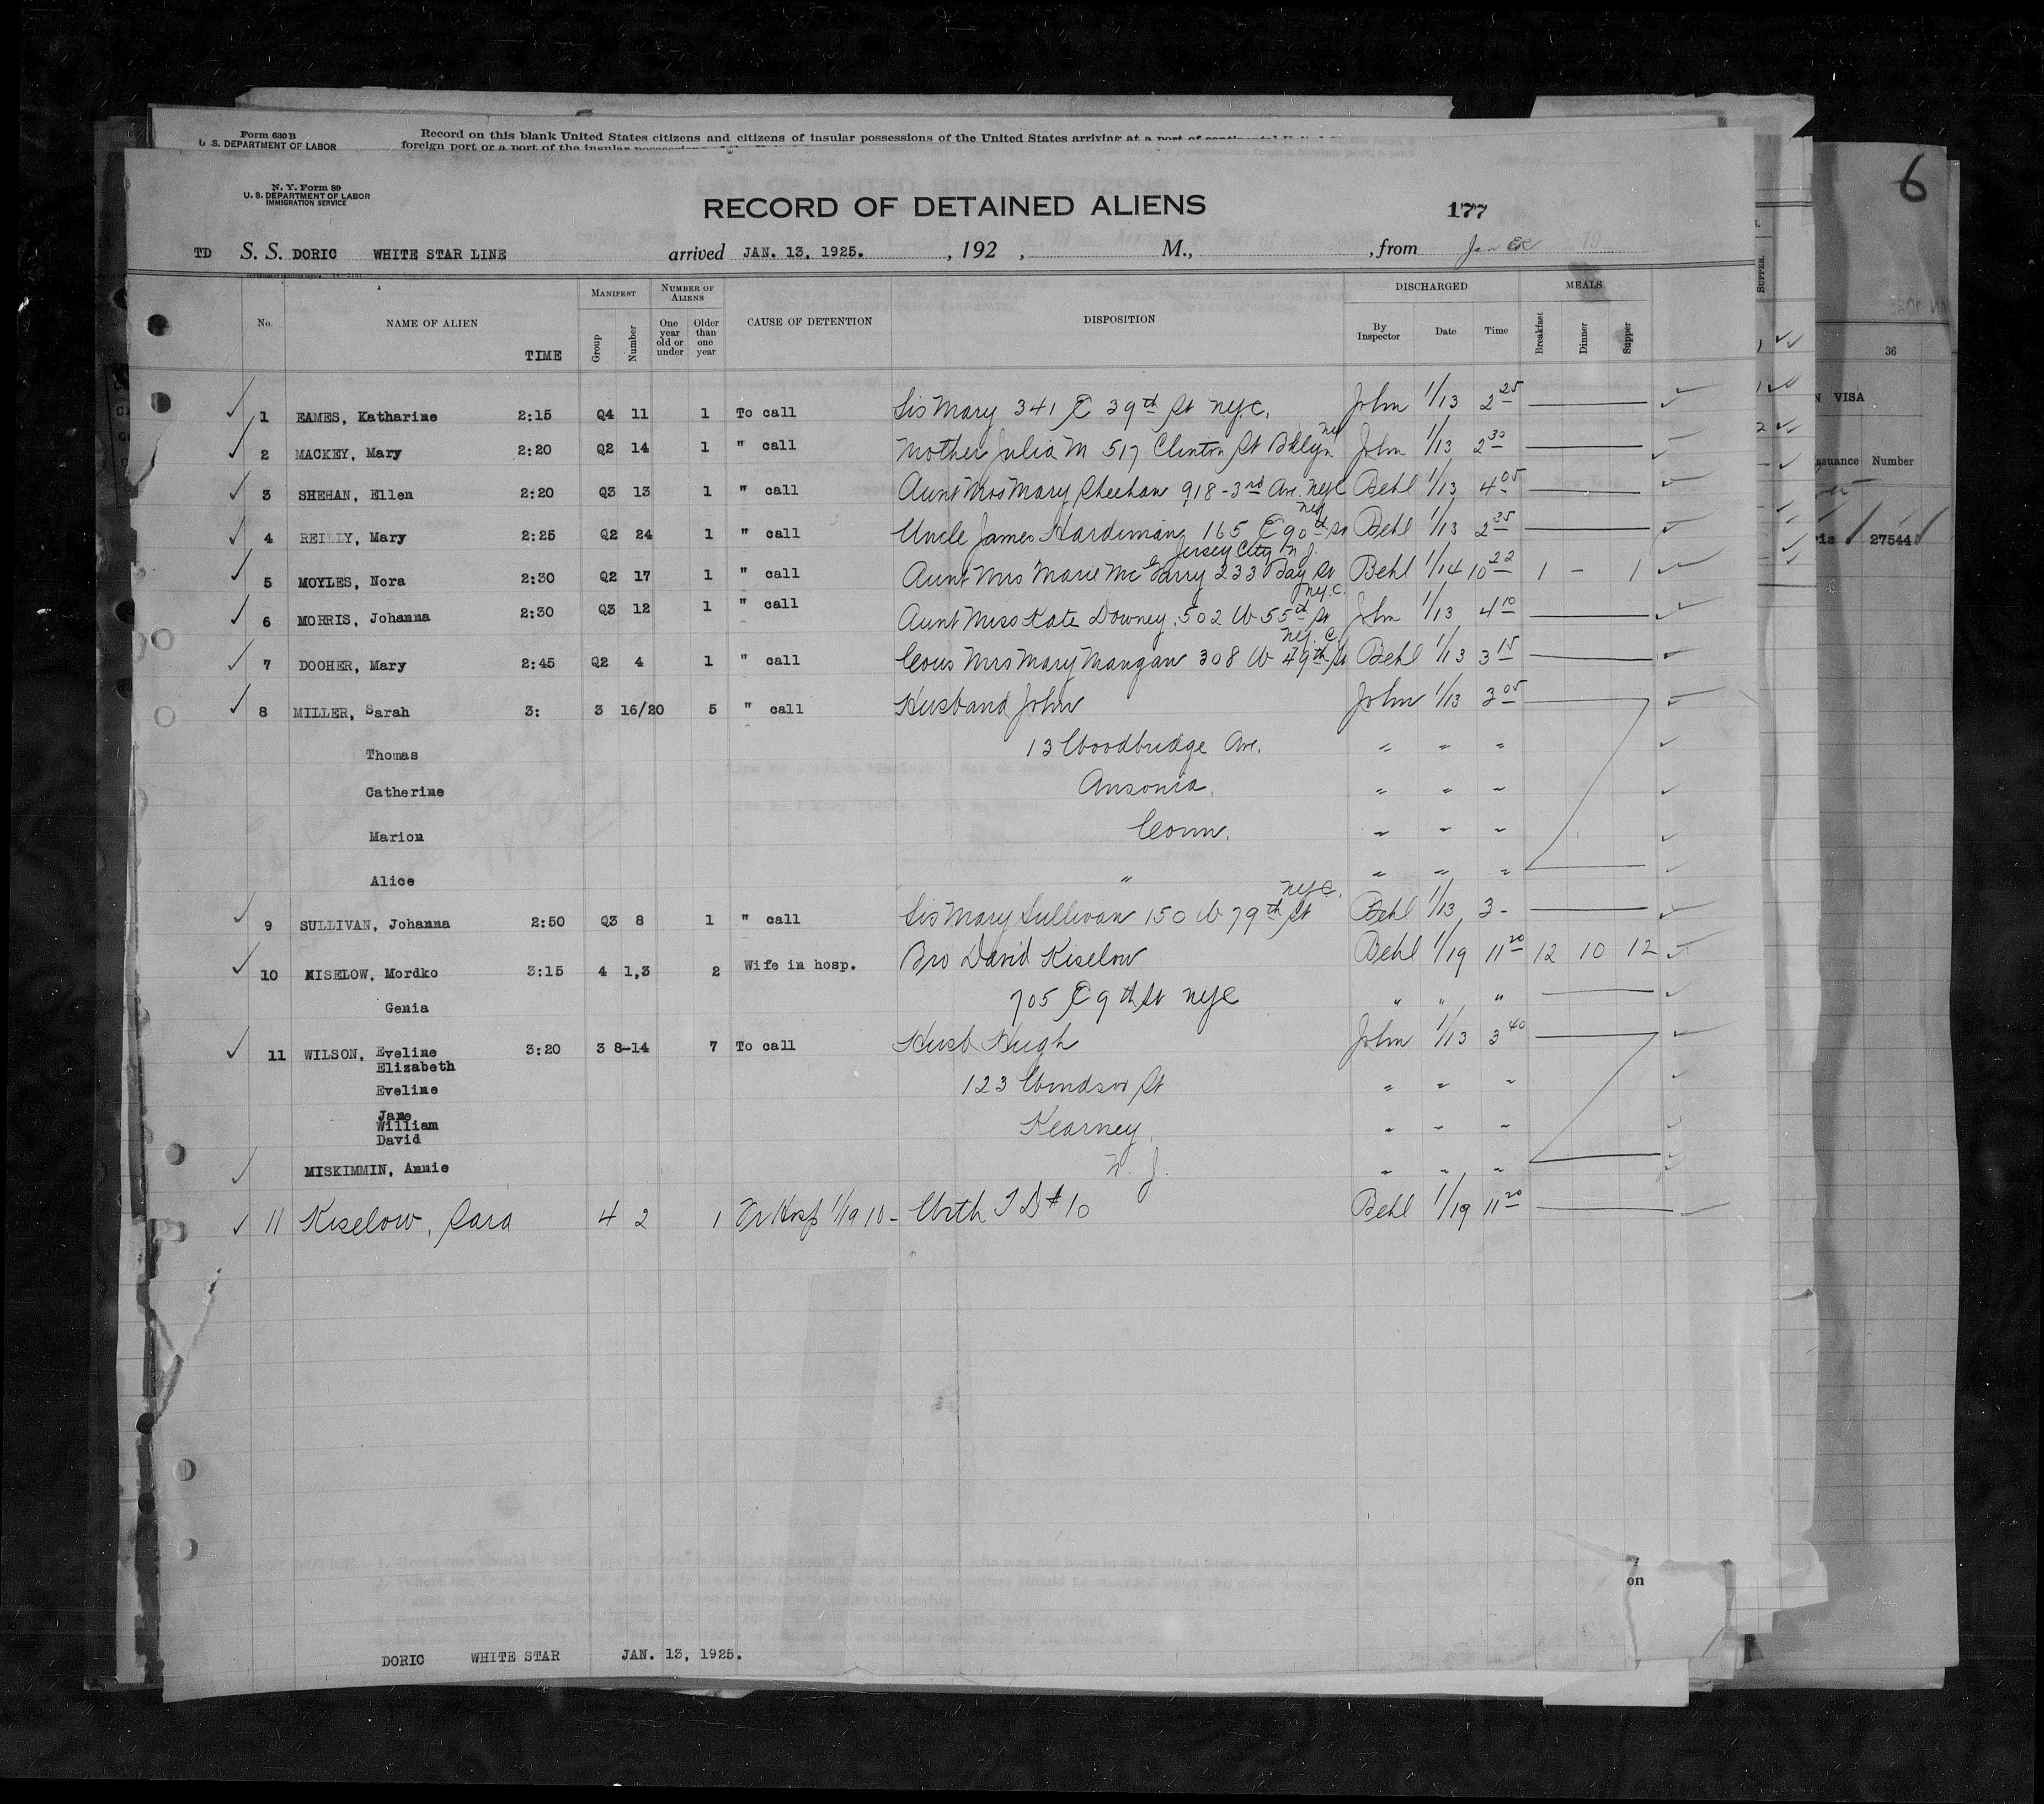 Form 630 B
U. S. DEPARTMENT OF LABOR
Record on this blank United States citizens and citizens of insular possessions of the United States arriving at a port of continental
foreign port or a port of the insular possessions
6
N. Y. Form 89
U. S. DEPARTMENT OF LABOR
IMMIGRATION SERVICE
RECORD OF DETAINED ALIENS
177
TD S. S. DORIC WHITE STAR LINE arrived JAN. 13, 1925. , 192 , M., , from
No. NAME OF ALIEN TIME MANIFEST Group Number NUMBER OF ALIENS One year old or under Older than one year CAUSE OF DETENTION DISPOSITION DISCHARGED By Inspector Date Time MEALS Breakfast Dinner Supper
1 EAMES, Katharine 2:15 Q4 11 1 To call Sis Mary 341 E 39th St NYC. John 1/13 2 25
2 MACKEY, Mary 2:20 Q2 14 1 " call Mother Julia M 517 Clinton St Bklyn NY John 1/13 2 30
3 SHEHAN, Ellen 2:20 Q3 13 1 " call Aunt Mrs Mary Sheehan 918 - 3rd Ave. NYC Behl 1/13 4 05
4 REILLY, Mary 2:25 Q2 24 1 " call Uncle James Hardiman 165 E 90th St NY Behl 1/13 2 35
5 MOYLES, Nora 2:30 Q2 17 1 " call Aunt Mrs Marie McGarry 233 Bay St Jersey City N. J. Behl 1/14 10 22 1 - 1
6 MORRIS, Johanna 2:30 Q3 12 1 " call Aunt Miss Kate Downey 502 W 55th St N.Y.C. John 1/13 4 10
7 DOOHER, Mary 2:45 Q2 4 1 " call Cous Mrs Mary Mangan 308 W 49th St N.Y.C. Behl 1/13 3 15
8 MILLER, Sarah 3: 3 16/20 5 " call Husband John John 1/13 3 05
Thomas 13 Woodbridge Ave. " " "
Catherine Ansonia, " " "
Marion Conn. " " "
Alice " " " "
9 SULLIVAN, Johanna 2:50 Q3 8 1 " call Sis Mary Sullivan 150 W 79th St NYC. Behl 1/13 3 -
10 KISELOW, Mordko 3:15 4 1,3 2 Wife in hosp. Bro David Kiselow Behl 1/19 11 20 12 10 12
Genia 705 E 9th St NYC " " "
11 WILSON, Eveline 3:20 3 8-14 7 To call Husb Hugh John 1/13 3 40
Elizabeth
Eveline 123 Windsor St " " "
Jane
William Kearney, " " "
David
MISKIMMIN, Annie N. J. " " "
11 Kiselow, Sara 4 2 1 Fr Hosp 1/19 10 - With TD # 10 Behl 1/19 11 20
on
DORIC WHITE STAR JAN. 13, 1925.
SUPPER.
36
VISA
Number
27544